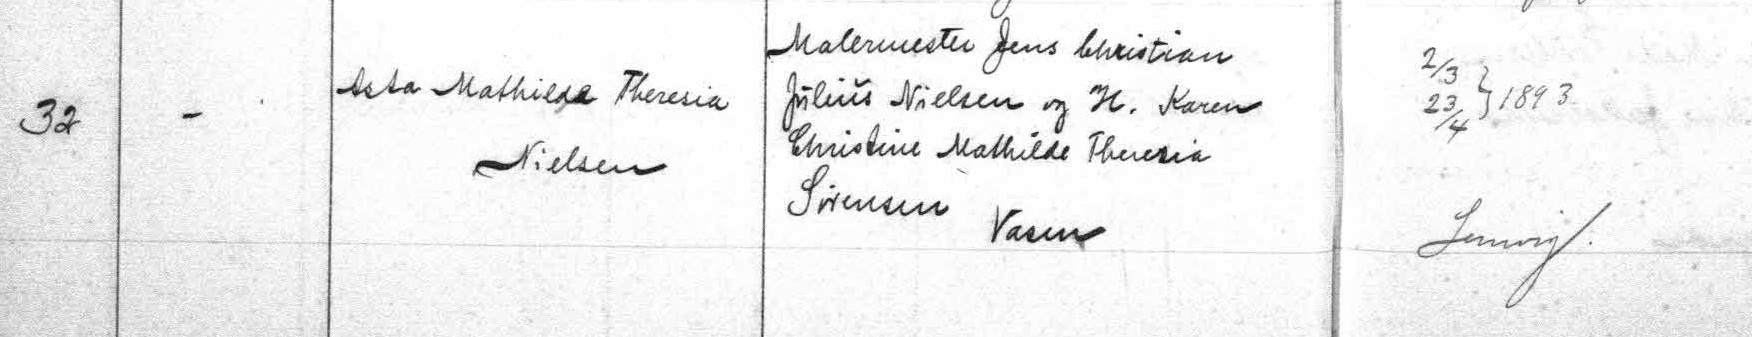 32
-
Asta Mathilde Theresia
Nielsen
Malermester Jens Christian
Julius Nielsen og H. Karen
Christine Mathilde Theresia
Sørensen
Vasen
2/3
23/4 } 1893
Lemvig.